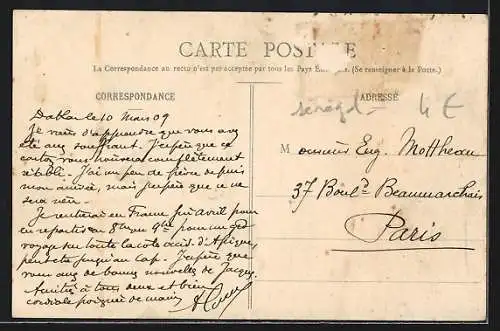 CARTE POSTALE
La Correspondance au recto n'est pas acceptée par tous les Pays Étrangers. (Se renseigner à la Poste.)
CORRESPONDANCE
Dakar le 10 Mars 09
Je viens d'apprendre que vous avez
été souffrant. J'espère que ce
carton vous trouvera complètement
rétabli. J'ai un peu de fièvre depuis
mon arrivée, mais j'espère que ce ne
sera rien.
Je rentrerai en France fin Avril pour
en repartir en 8bre ou 9bre pour un gd
voyage sur toute la côte occid. d'Afrique
peut-être jusqu'au Cap. J'espère que
vous avez de bonnes nouvelles de Jacques.
Amitiés à tous deux et bien
cordiale poignée de mains
sénégal
4 €
ADRESSÉ
Monsieur Eug. Mottheau
37 Boulд Beaumarchais
Paris